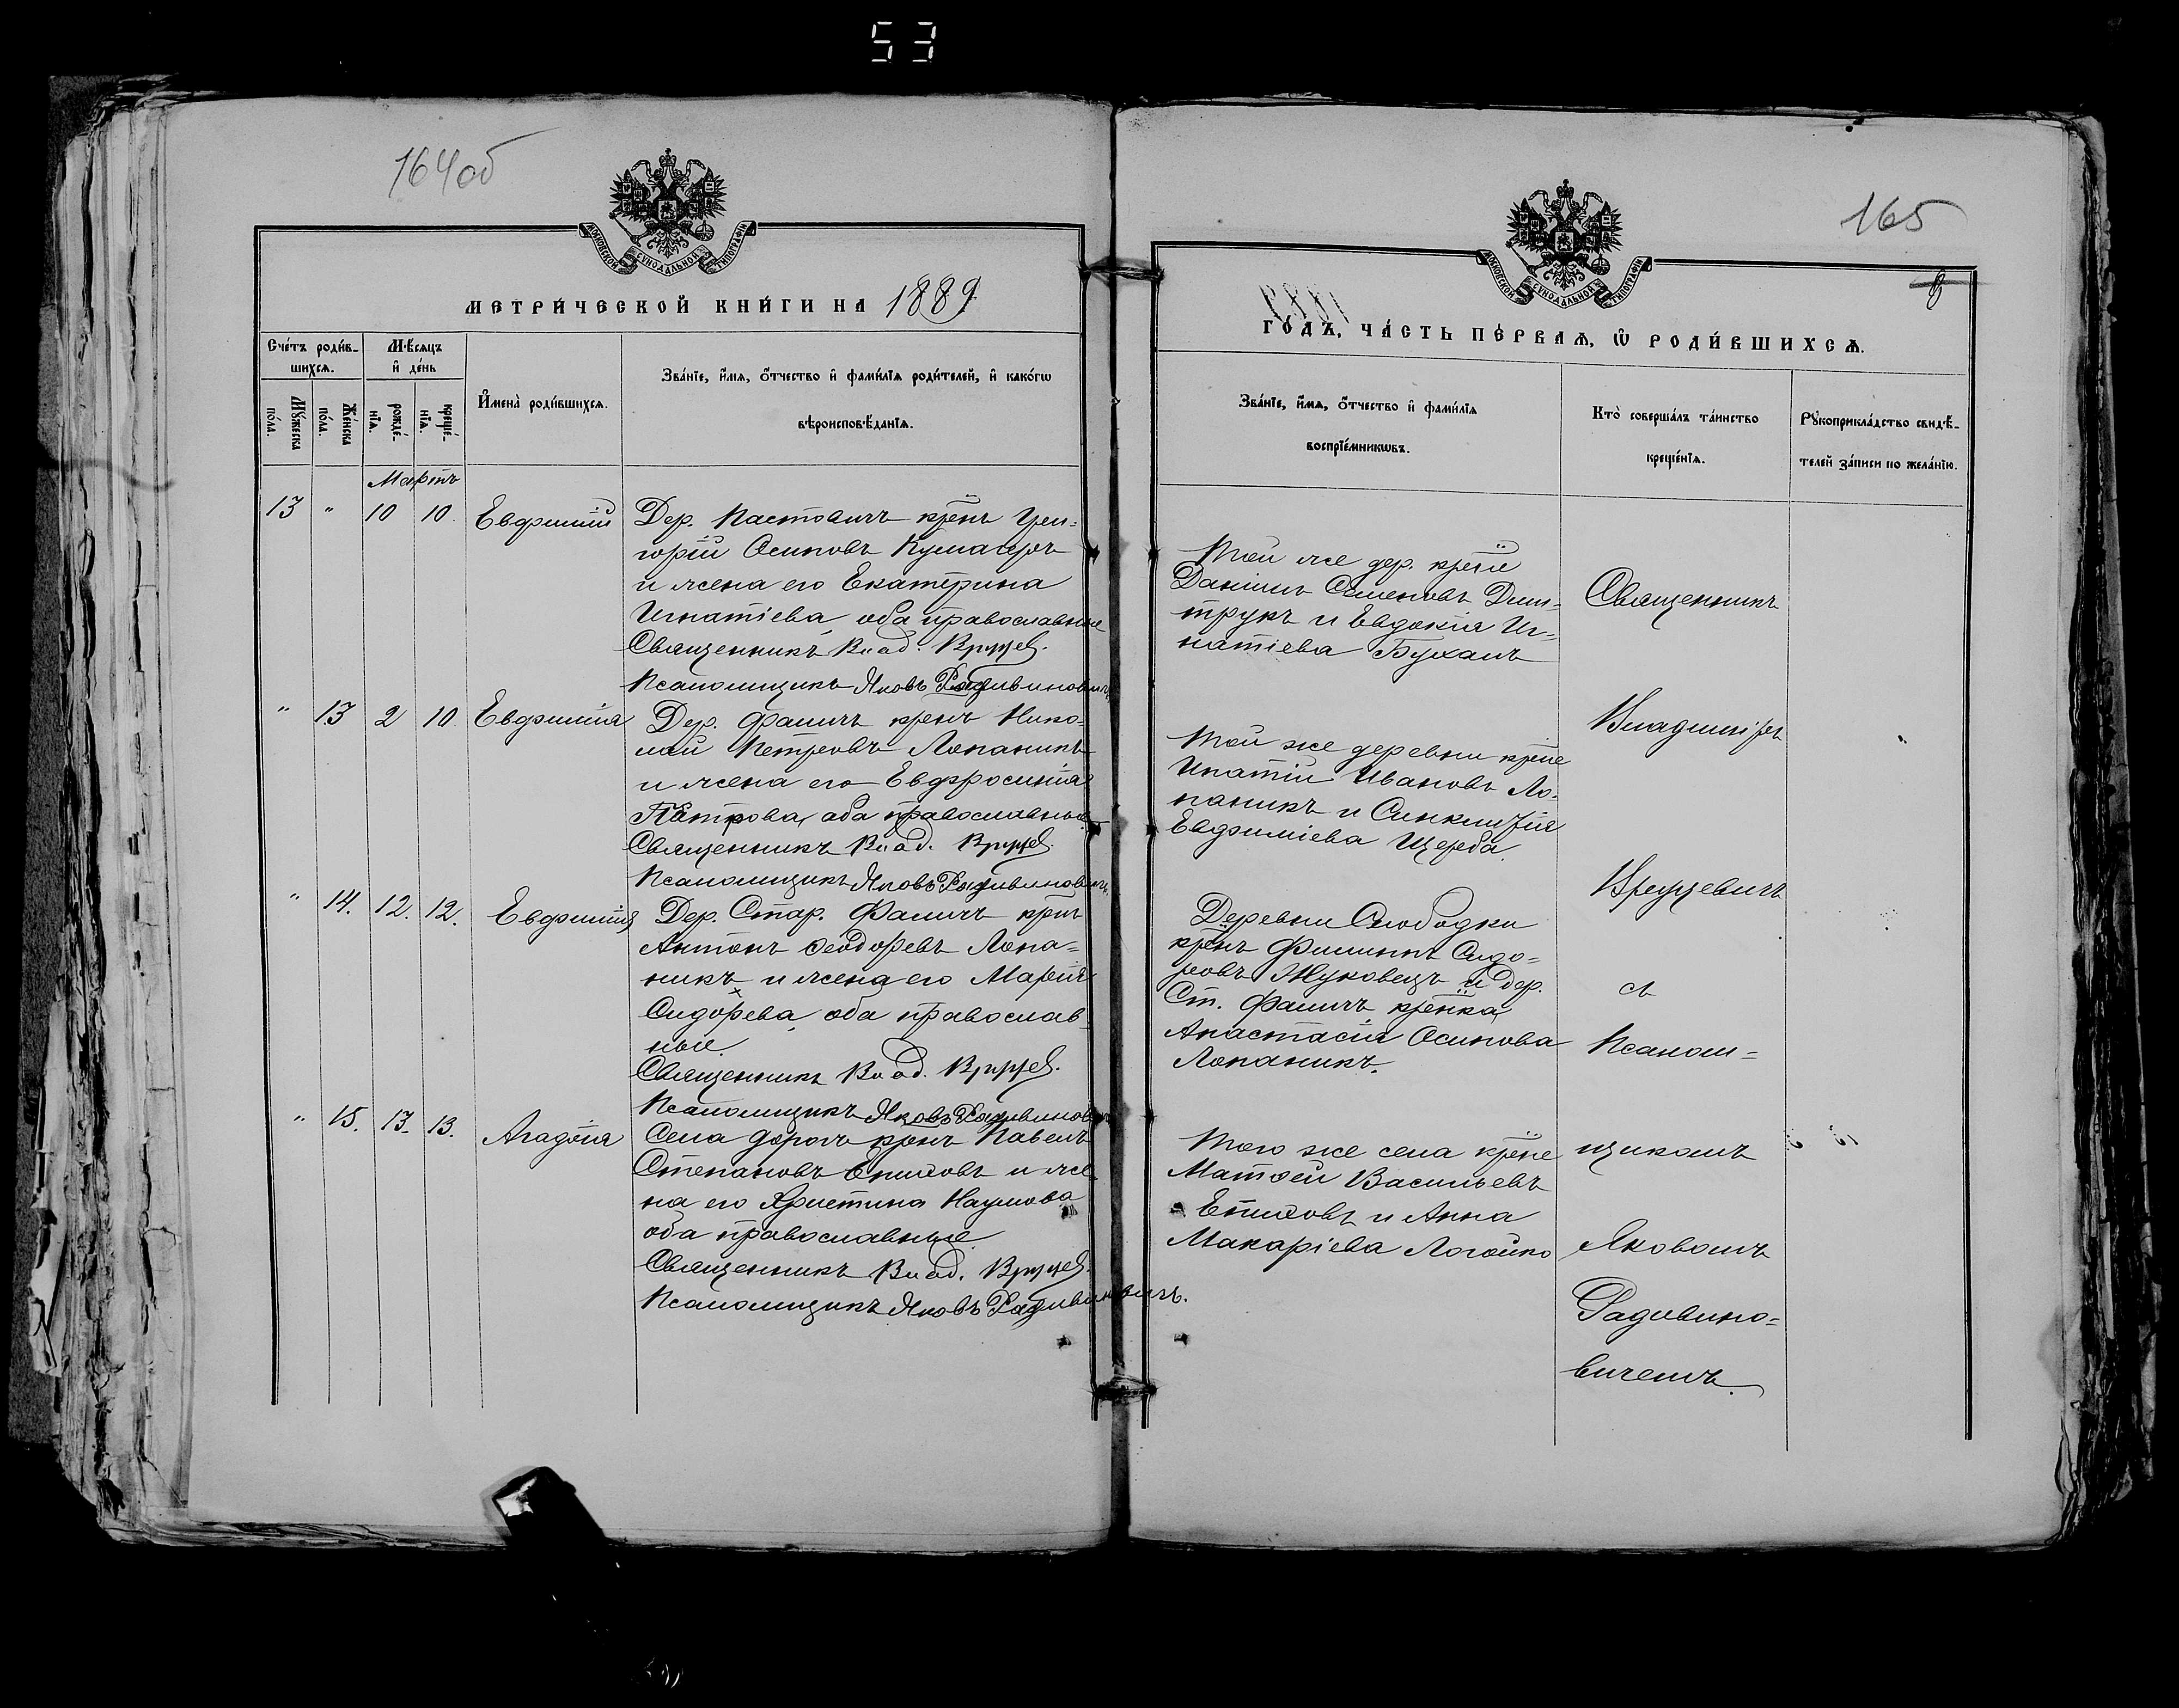 53
164об
МОСКОВСКОЙ СѴНОДАЛЬНОЙ ТИПОГРАФІИ
МЕТРИ́ЧЕСКОЙ КНИ́ГИ НА 1889
Сче́тъ роди́в-
шихся.
Мꙋ́жеска
по́ла.
Же́нска
по́ла.
Мѣ́сяцъ
и҆ де́нь
рожде́-
нїѧ.
креще́-
нїѧ.
И҆мена̀ роди́вшихсѧ.
Зва́нїе, и҆́мѧ, ѻ҆́тчество и҆ фами́лїѧ роди́телей, и҆ како́гѡ
вѣроисповѣ́данїѧ.
Мартъ
13 " 10 10. Евфимій
Дер. Пастовичъ крѣнъ Гри-
горій Осиповъ Кушнеръ
и жена его Екатерина
Игнатіева, оба православные
Священникъ Влад. Вруцев.
Псаломщикъ Яковъ Радивиновичъ
" 13 2 10. Евфимія
Дер. Фаличъ крѣнъ Нико-
лай Петровъ Лопаникъ
и жена его Евфросинія
Петрова, оба православные
Священникъ Влад. Вруцев.
Псаломщикъ Яковъ Радивиновичъ
" 14. 12. 12. Евфимія
Дер. Стар. Фаличъ крнъ
Антонъ Ѳеодоровъ Лопа-
никъ и жена его Марія
Сидорева, оба православ-
ные.
Священникъ Влад. Вруцев.
Псаломщикъ Яковъ Радивинович
" 15. 13. 13. Агафія
Села Дорогъ крѣнъ Павелъ
Степановъ Епиховъ и же-
на его Христина Наумова
оба православные.
Священникъ Влад. Вруцев.
Псаломщикъ Яковъ Радивиновичъ.
165
8
МОСКОВСКОЙ СѴНОДАЛЬНОЙ ТИПОГРАФІИ
ГО́ДЪ, ЧА́СТЬ ПЕ́РВАѦ, Ѡ҆ РОДИ́ВШИХСѦ.
Зва́нїе, и҆́мѧ, ѻ҆́тчество и҆ фами́лїѧ
воспрїе́мникѡвъ.
Кто̀ соверша́лъ та́инство
креще́нїѧ.
Рꙋкоприкла́дство свидѣ́-
телей за́писи по жела́нїю.
Той же дер. крѣне
Даніилъ Семеновъ Дми-
трукъ и Евдокія Иг-
натіева Бухалъ
Той же деревни крѣне
Ипатій Ивановъ Ло-
паникъ и Синклитія
Евфиміева Щерба
Деревни Слободки
крѣнъ Филиппъ Сидо-
ровъ Жуковецъ и дер.
Ст. Фаличъ крѣнка
Анастасія Осипова
Лопаникъ.
Того же села крѣне
Матѳей Васильевъ
Епиховъ и Анна
Макаріева Логойко
Священникъ
Владиміръ
Вруцевичъ
съ
Псалом-
щикомъ
Яковомъ
Радивино-
вичемъ.